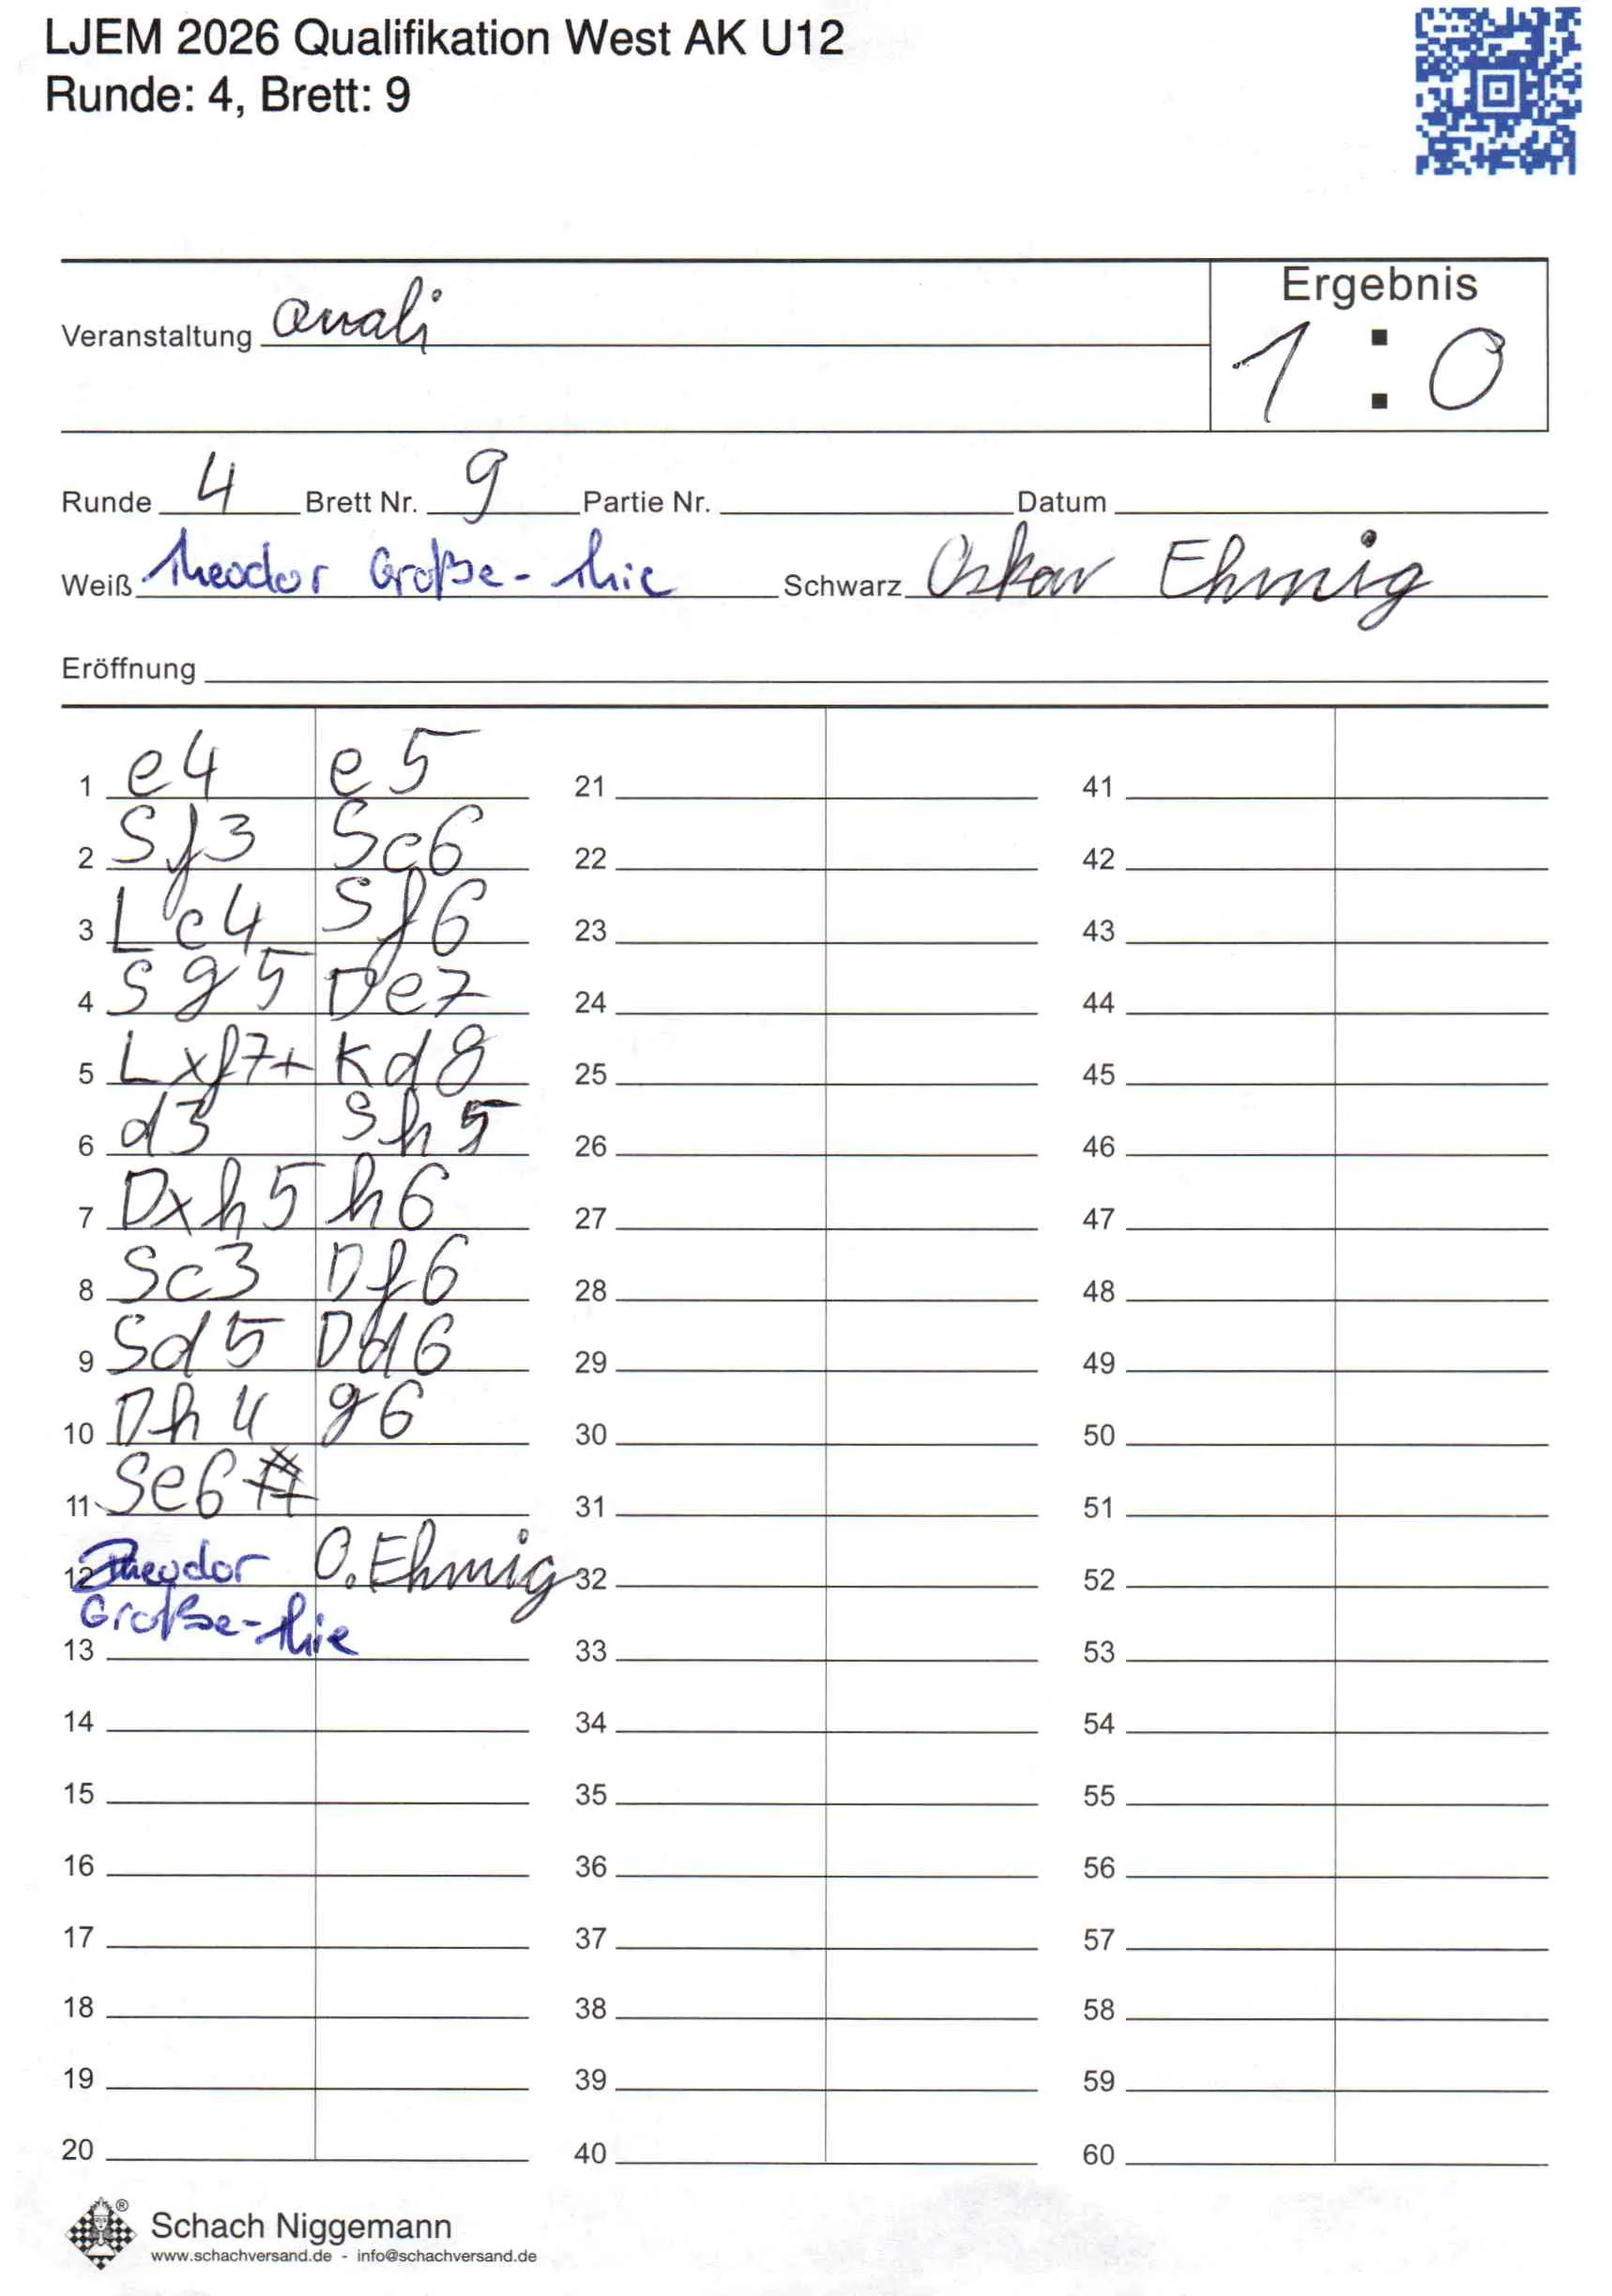 LJEM 2026 Qualifikation West AK U12
Runde: 4, Brett: 9
Veranstaltung Quali
Ergebnis
1 : 0
Runde 4 Brett Nr. 9 Partie Nr. Datum
Weiß Theodor Große-Thie Schwarz Oskar Ehmig
Eröffnung
1 e4 e5 21 41
2 Sf3 Sc6 22 42
3 Lc4 Sf6 23 43
4 Sg5 De7 24 44
5 Lxf7+ Kd8 25 45
6 d3 Sh5 26 46
7 Dxh5 h6 27 47
8 Sc3 Df6 28 48
9 Sd5 Dd6 29 49
10 Dh4 g6 30 50
11 Se6# 31 51
12 Theodor O. Ehmig 32 52
Große-Thie
13 33 53
14 34 54
15 35 55
16 36 56
17 37 57
18 38 58
19 39 59
20 40 60
® Schach Niggemann
www.schachversand.de - info@schachversand.de